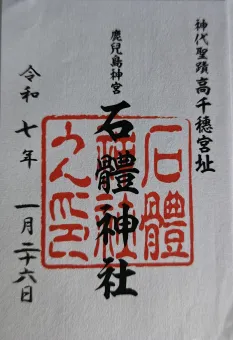 神代聖蹟高千穂宮址
鹿兒島神宮
石體神社
令和七年一月二十六日
石體神社之印